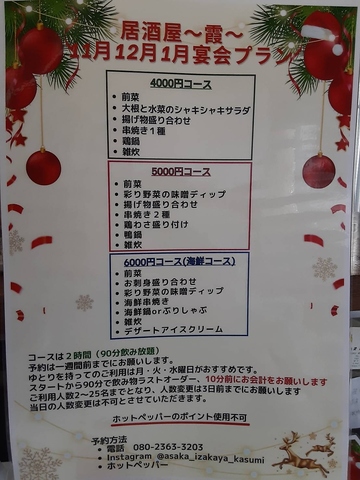 居酒屋〜霞〜
11月12月1月宴会プラン
4000円コース
• 前菜
• 大根と水菜のシャキシャキサラダ
• 揚げ物盛り合わせ
• 串焼き１種
• 鶏鍋
• 雑炊
5000円コース
• 前菜
• 彩り野菜の味噌ディップ
• 揚げ物盛り合わせ
• 串焼き２種
• 鶏わさ盛り付け
• 鴨鍋
• 雑炊
6000円コース(海鮮コース)
• 前菜
• お刺身盛り合わせ
• 彩り野菜の味噌ディップ
• 海鮮串焼き
• 海鮮鍋orぶりしゃぶ
• 雑炊
• デザートアイスクリーム
コースは２時間（90分飲み放題）
予約は一週間前までにお願いします。
ゆとりを持ってのご利用は月・火・水曜日がおすすめです。
スタートから90分で飲み物ラストオーダー、10分前にお会計をお願いします
ご利用人数2〜25名までとなり、人数変更は3日前までにお願いします
当日の人数変更は不可とさせていただきます。
ホットペッパーのポイント使用不可
予約方法
• 電話 080-2363-3203
• Instagram @asaka_izakaya_kasumi
• ホットペッパー